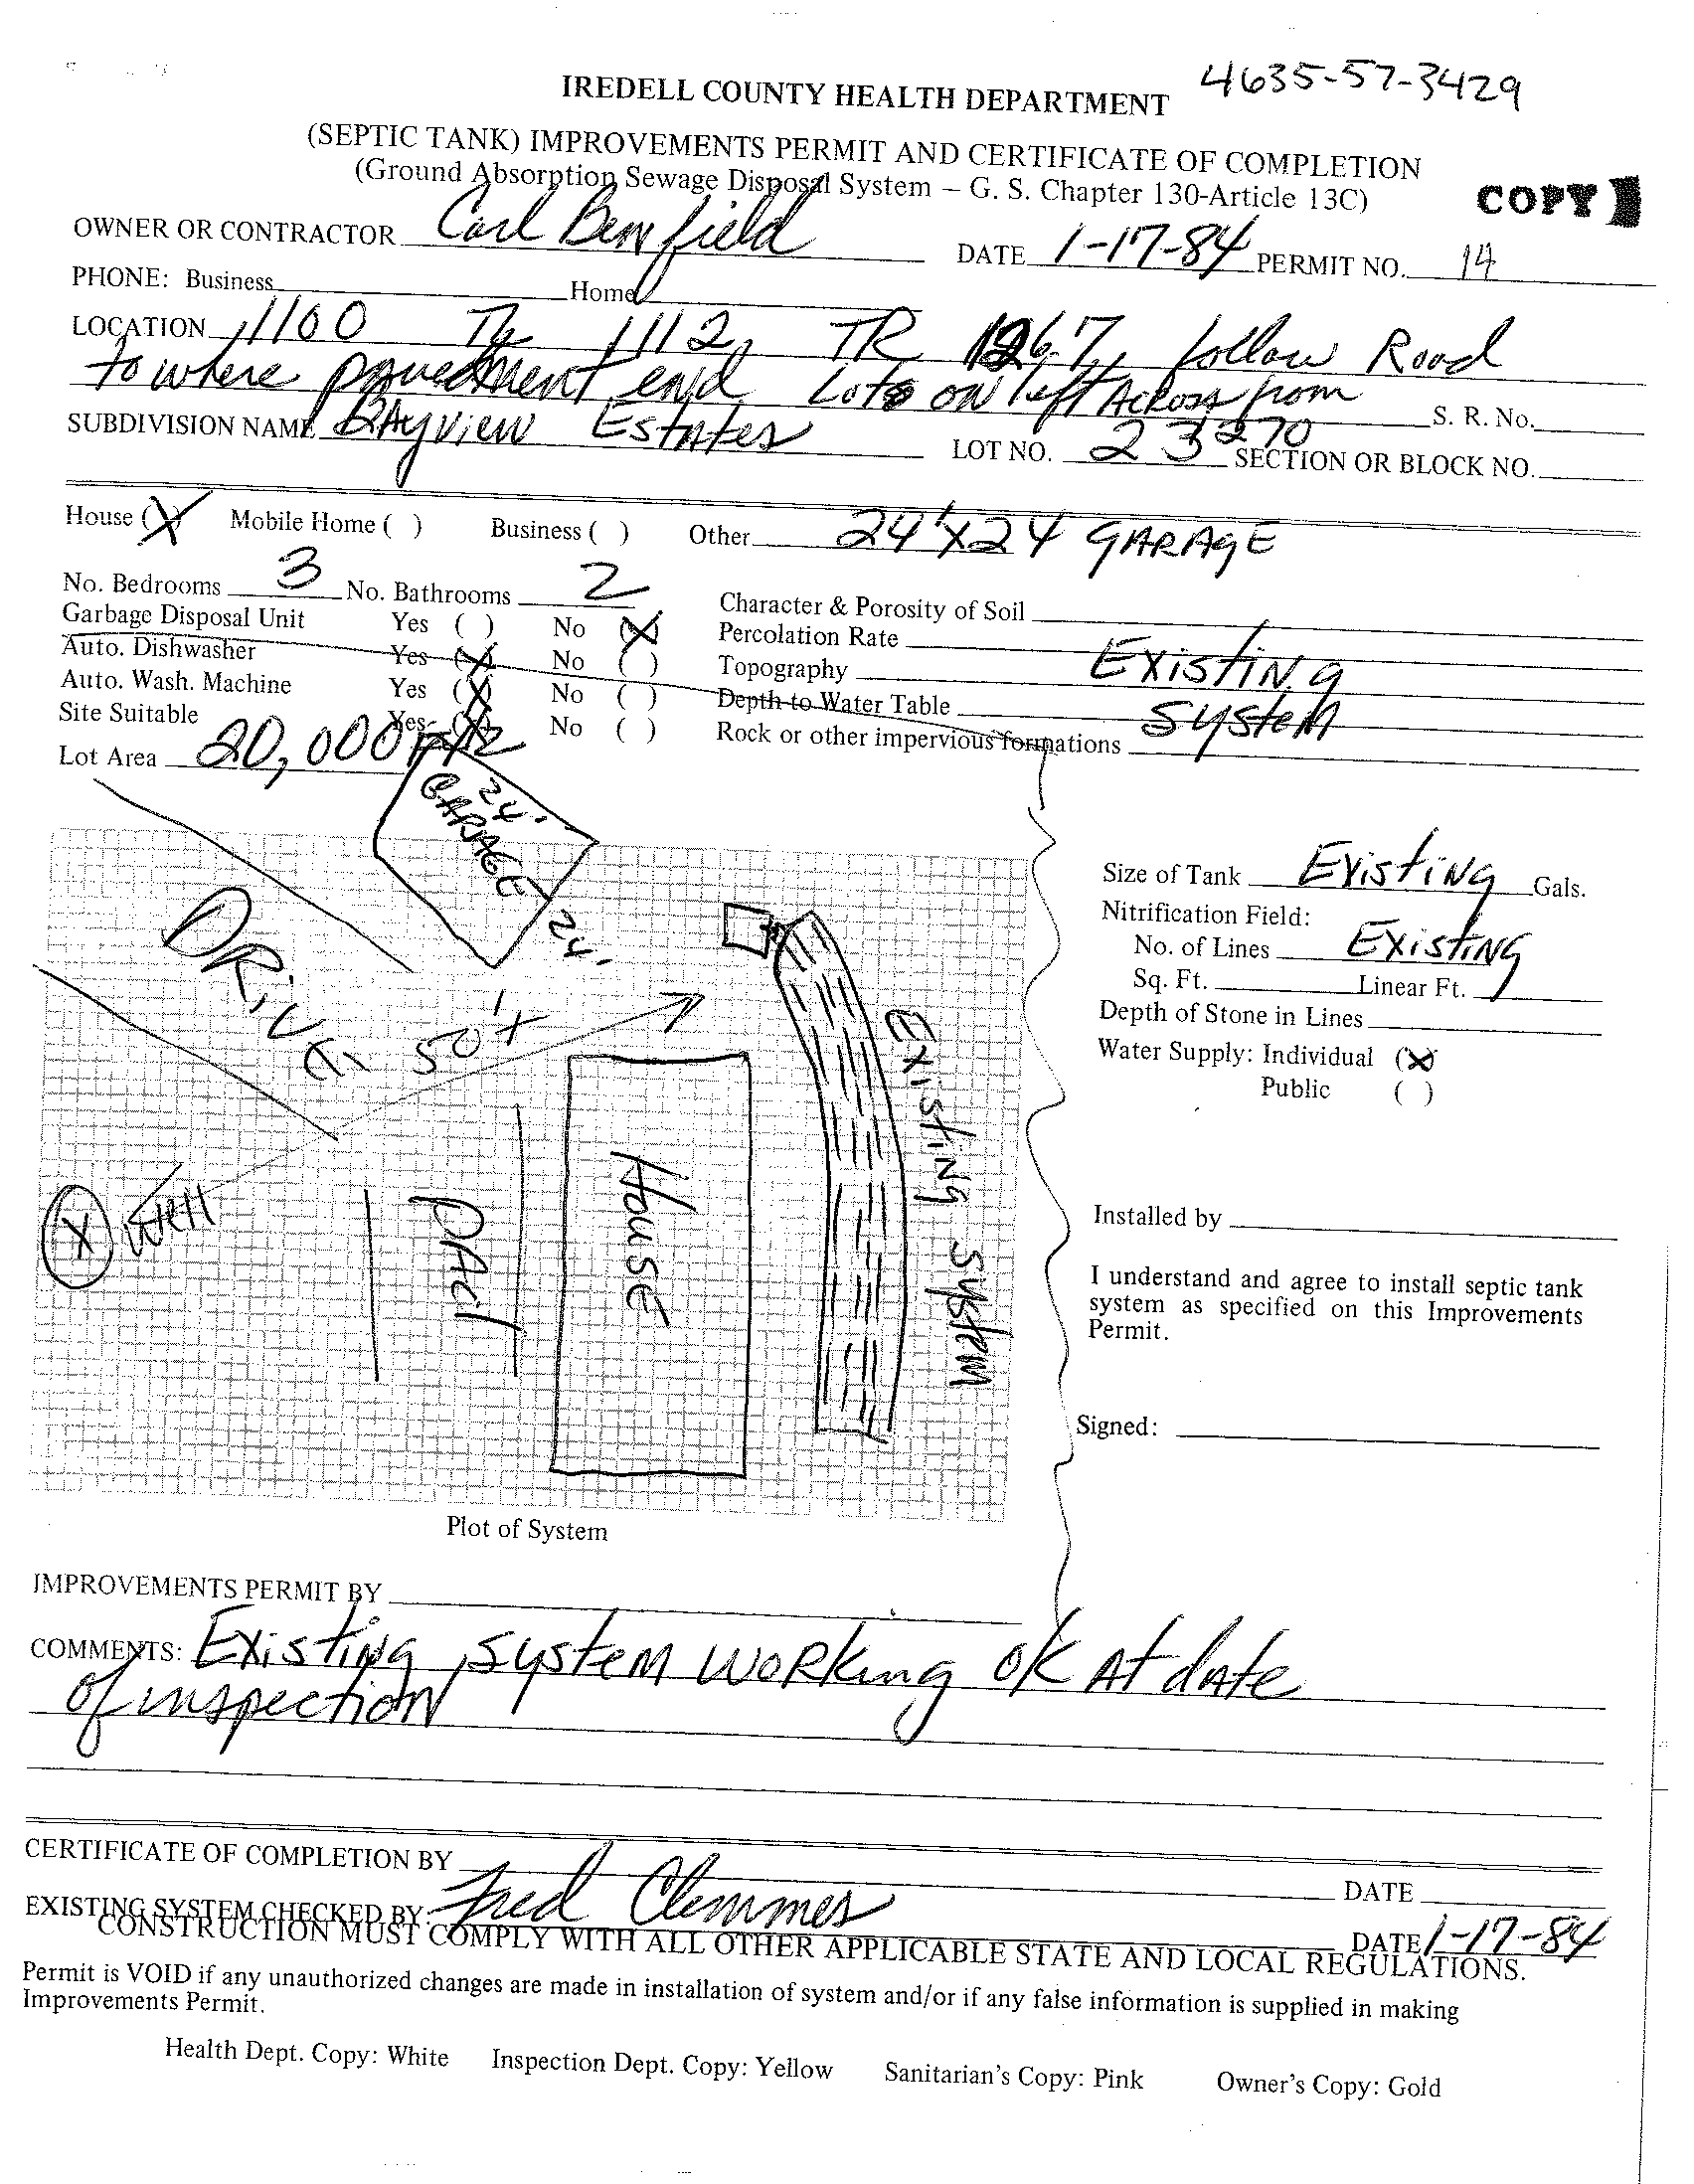 4635-57-3429
IREDELL COUNTY HEALTH DEPARTMENT
(SEPTIC TANK) IMPROVEMENTS PERMIT AND CERTIFICATE OF COMPLETION
(Ground Absorption Sewage Disposal System – G. S. Chapter 130-Article 13C)
COPY
OWNER OR CONTRACTOR Carl Benfield DATE 1-17-84 PERMIT NO. 14
PHONE: Business Home
LOCATION 1100 TL 1112, TR 1267, follow Road
to where pavedment end Lots on left Across from
270 S. R. No.
SUBDIVISION NAME BAyview Estates LOT NO. 23 SECTION OR BLOCK NO.
House (X) Mobile Home ( ) Business ( ) Other 24'x24 GARAGE
No. Bedrooms 3 No. Bathrooms 2 Character & Porosity of Soil
Garbage Disposal Unit Yes ( ) No (X) Percolation Rate
Auto. Dishwasher Yes (X) No ( ) Topography Existing
Auto. Wash. Machine Yes (X) No ( ) Depth to Water Table System
Site Suitable Yes (X) No ( ) Rock or other impervious formations
Lot Area 20,000 Ft2
24'
GARAGE
24'
DRive
50'+
Well
PAti
House
Existing System
Size of Tank Existing Gals.
Nitrification Field:
No. of Lines Existing
Sq. Ft. Linear Ft.
Depth of Stone in Lines
Water Supply: Individual (X)
Public ( )
Installed by
I understand and agree to install septic tank
system as specified on this Improvements
Permit.
Signed:
Plot of System
IMPROVEMENTS PERMIT BY
COMMENTS: Existing System Working OK At date
of inspection
CERTIFICATE OF COMPLETION BY DATE
EXISTING SYSTEM CHECKED BY: Fred Clemmes DATE 1-17-84
CONSTRUCTION MUST COMPLY WITH ALL OTHER APPLICABLE STATE AND LOCAL REGULATIONS.
Permit is VOID if any unauthorized changes are made in installation of system and/or if any false information is supplied in making
Improvements Permit.
Health Dept. Copy: White Inspection Dept. Copy: Yellow Sanitarian's Copy: Pink Owner's Copy: Gold